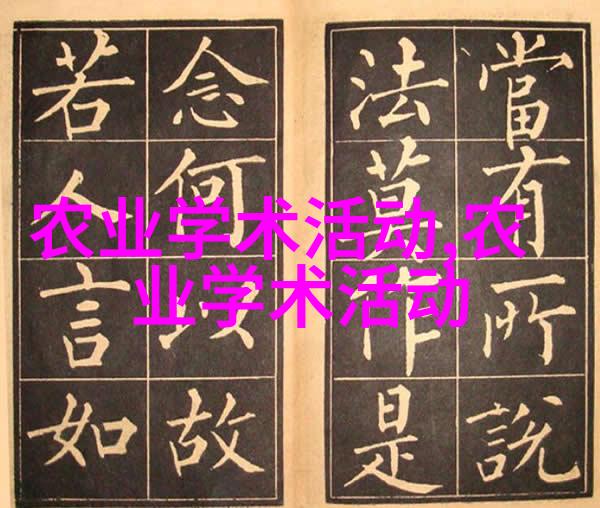 當有所說
法莫作是
念何以故
若人言如
农业学术活动,农
业学术活动